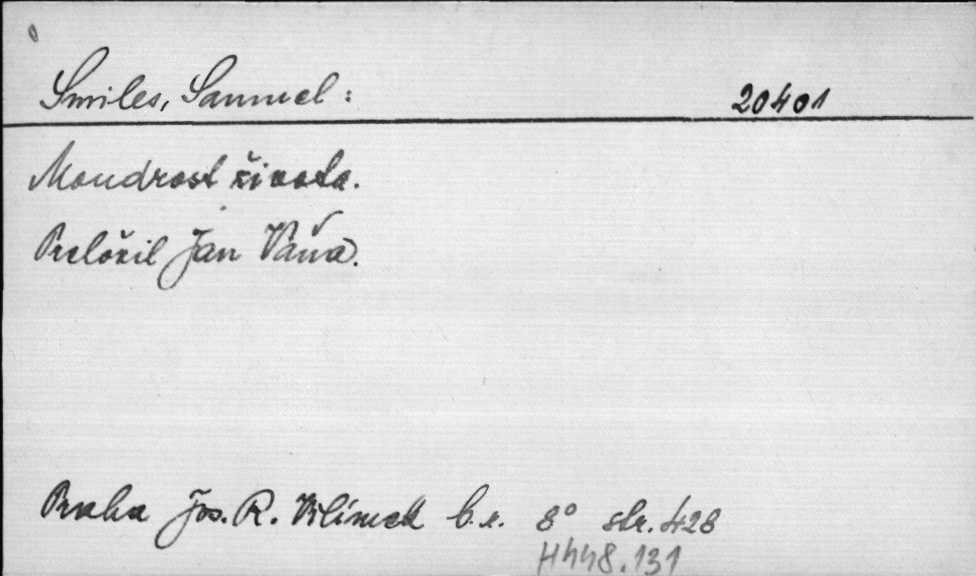 Smiles, Samuel: 20401
Moudrost života.
Preložil Jan Váňa.
Praha Jos. R. Vilímek b.r. 8° str. 428
H448.131